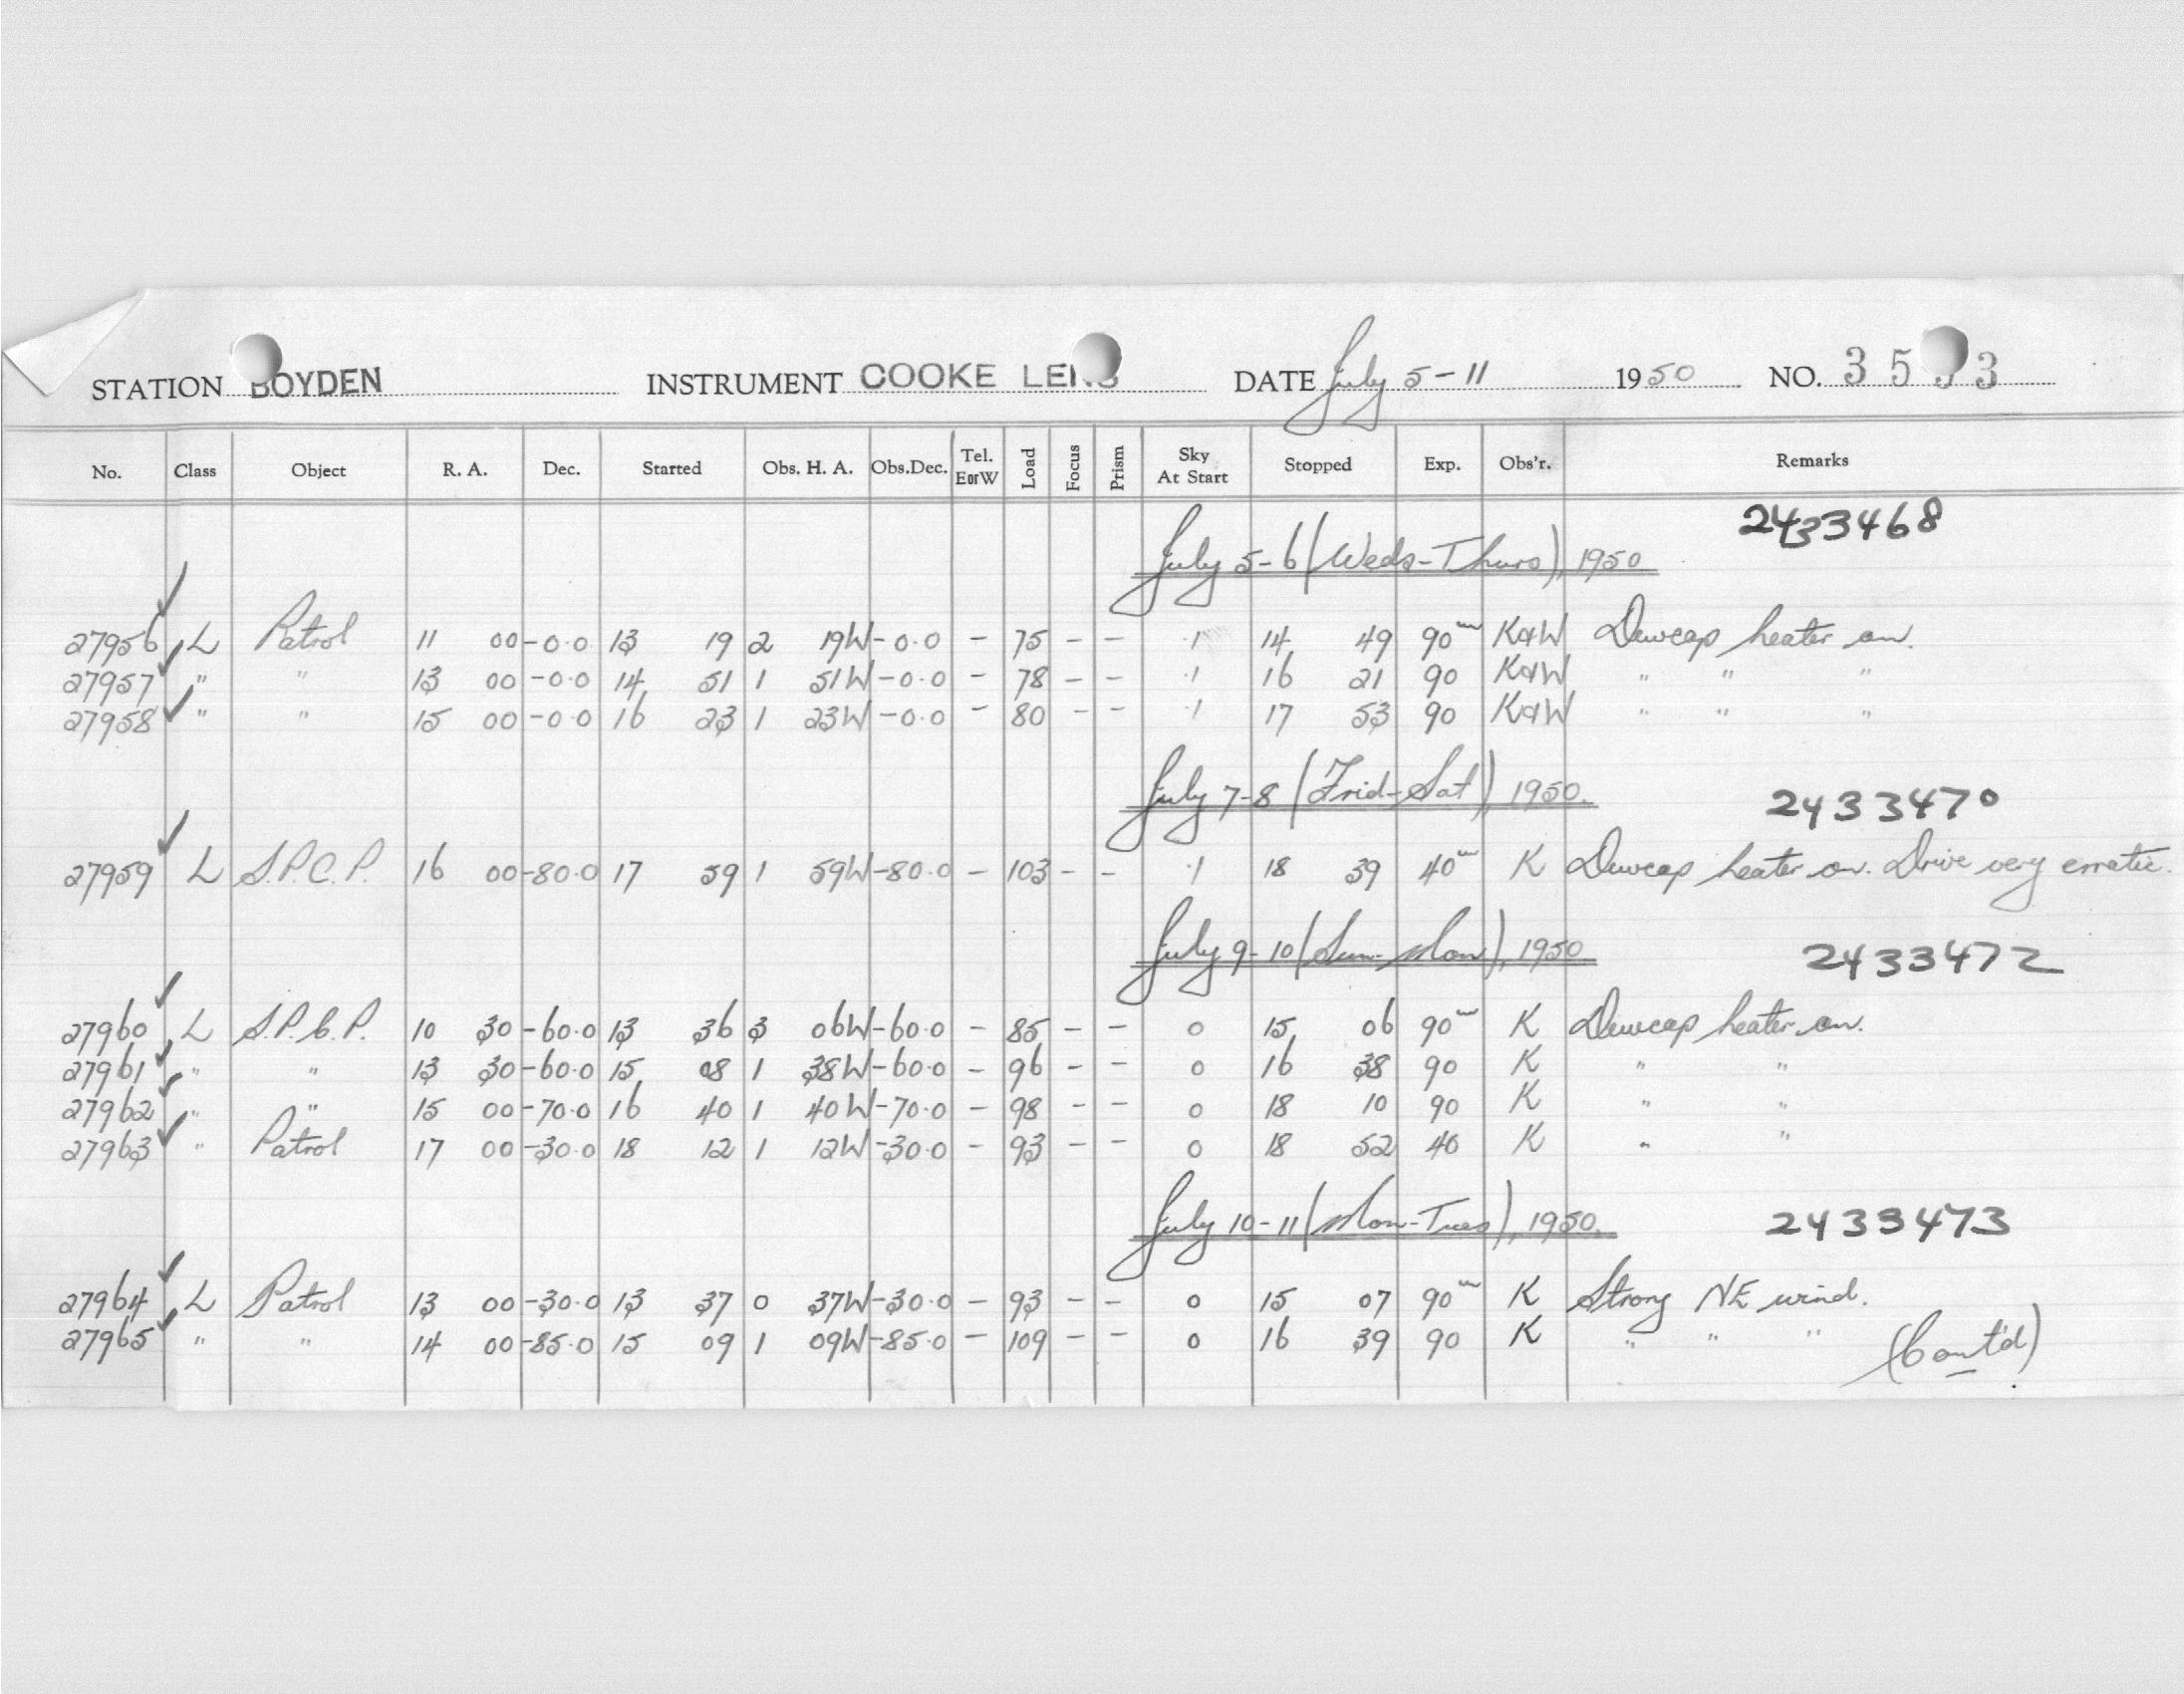 STATION BOYDEN INSTRUMENT COOKE LENS DATE July 5-11 1950 NO. 35 3
No. Class Object R. A. Dec. Started Obs. H. A. Obs.Dec. Tel. EorW Load Focus Prism Sky At Start Stopped Exp. Obs'r. Remarks
2433468
July 5-6 (Weds-Thurs), 1950
27956 L Patrol 11 00 -0.0 13 19 2 19W -0.0 - 75 - - .1 14 49 90m K&W Dewcap heater on.
27957 " " 13 00 -0.0 14 51 1 51W -0.0 - 78 - - .1 16 21 90 K&W " " "
27958 " " 15 00 -0.0 16 23 1 23W -0.0 - 80 - - .1 17 53 90 K&W " " "
July 7-8 (Frid-Sat), 1950. 2433470
27959 L S.P.C.P. 16 00 -80.0 17 59 1 59W -80.0 - 103 - - .1 18 39 40m K Dewcap heater on. Drive very erratic.
July 9-10 (Sun-Mon), 1950. 2433472
27960 L S.P.C.P. 10 30 -60.0 13 36 3 06W -60.0 - 85 - - 0 15 06 90m K Dewcap heater on.
27961 " " 13 30 -60.0 15 08 1 38W -60.0 - 96 - - 0 16 38 90 K " "
27962 " " 15 00 -70.0 16 40 1 40W -70.0 - 98 - - 0 18 10 90 K " "
27963 " Patrol 17 00 -30.0 18 12 1 12W -30.0 - 93 - - 0 18 52 40 K " "
July 10-11 (Mon-Tues), 1950. 2433473
27964 L Patrol 13 00 -30.0 13 37 0 37W -30.0 - 93 - - 0 15 07 90m K Strong NE wind.
27965 " " 14 00 -85.0 15 09 1 09W -85.0 - 109 - - 0 16 39 90 K " " "
(Cont'd)